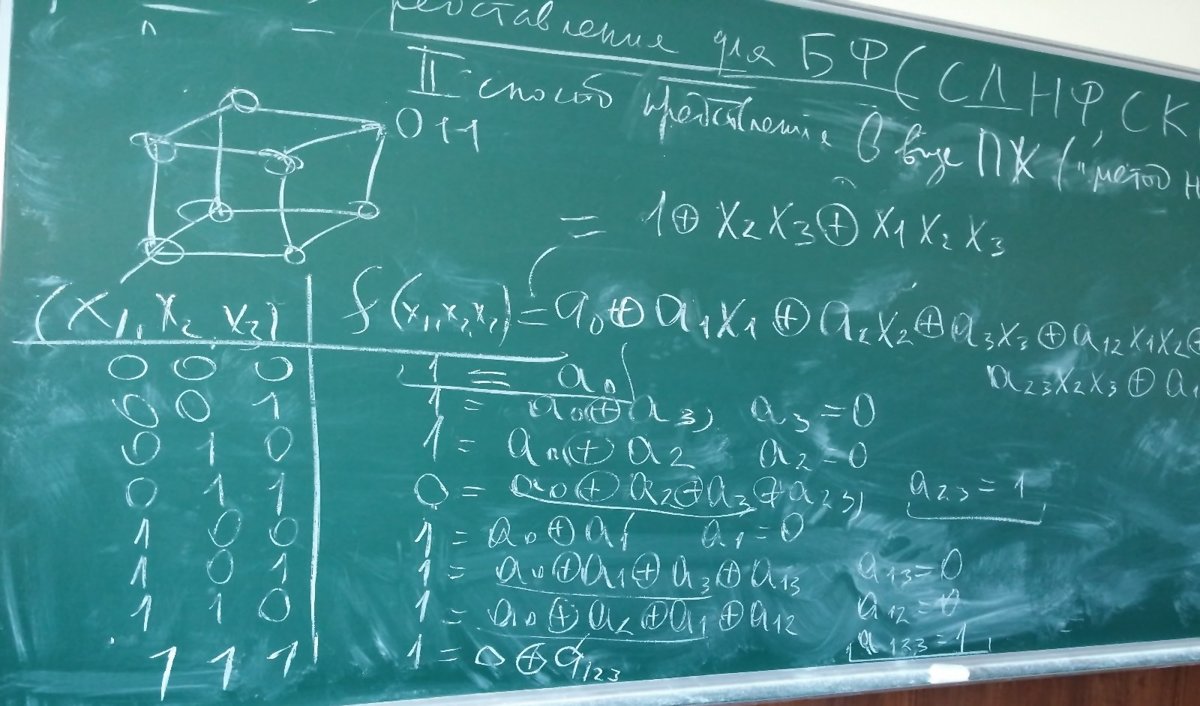 для БФ (СДНФ, СК
II способ представление в виде ПЖ ("метод н
011
= 1 ⊕ x₂x₃ ⊕ x₁x₂x₃
(x₁, x₂ x₃) f(x₁,x₂x₃) = a₀ ⊕ a₁x₁ ⊕ a₂x₂ ⊕ a₃x₃ ⊕ a₁₂x₁x₂ ⊕
a₂₃x₂x₃ ⊕ a
0 0 0 1 = a₀
0 0 1 1 = a₀ ⊕ a₃, a₃ = 0
0 1 0 1 = a₀ ⊕ a₂ a₂ = 0
0 1 1 0 = a₀ ⊕ a₂ ⊕ a₃ ⊕ a₂₃, a₂₃ = 1
1 0 0 1 = a₀ ⊕ a₁ a₁ = 0
1 0 1 1 = a₀ ⊕ a₁ ⊕ a₃ ⊕ a₁₃ a₁₃ = 0
1 1 0 1 = a₀ ⊕ a₂ ⊕ a₁ ⊕ a₁₂ a₁₂ = 0
1 1 1 1 = 0 ⊕ a₁₂₃ a₁₂₃ = 1